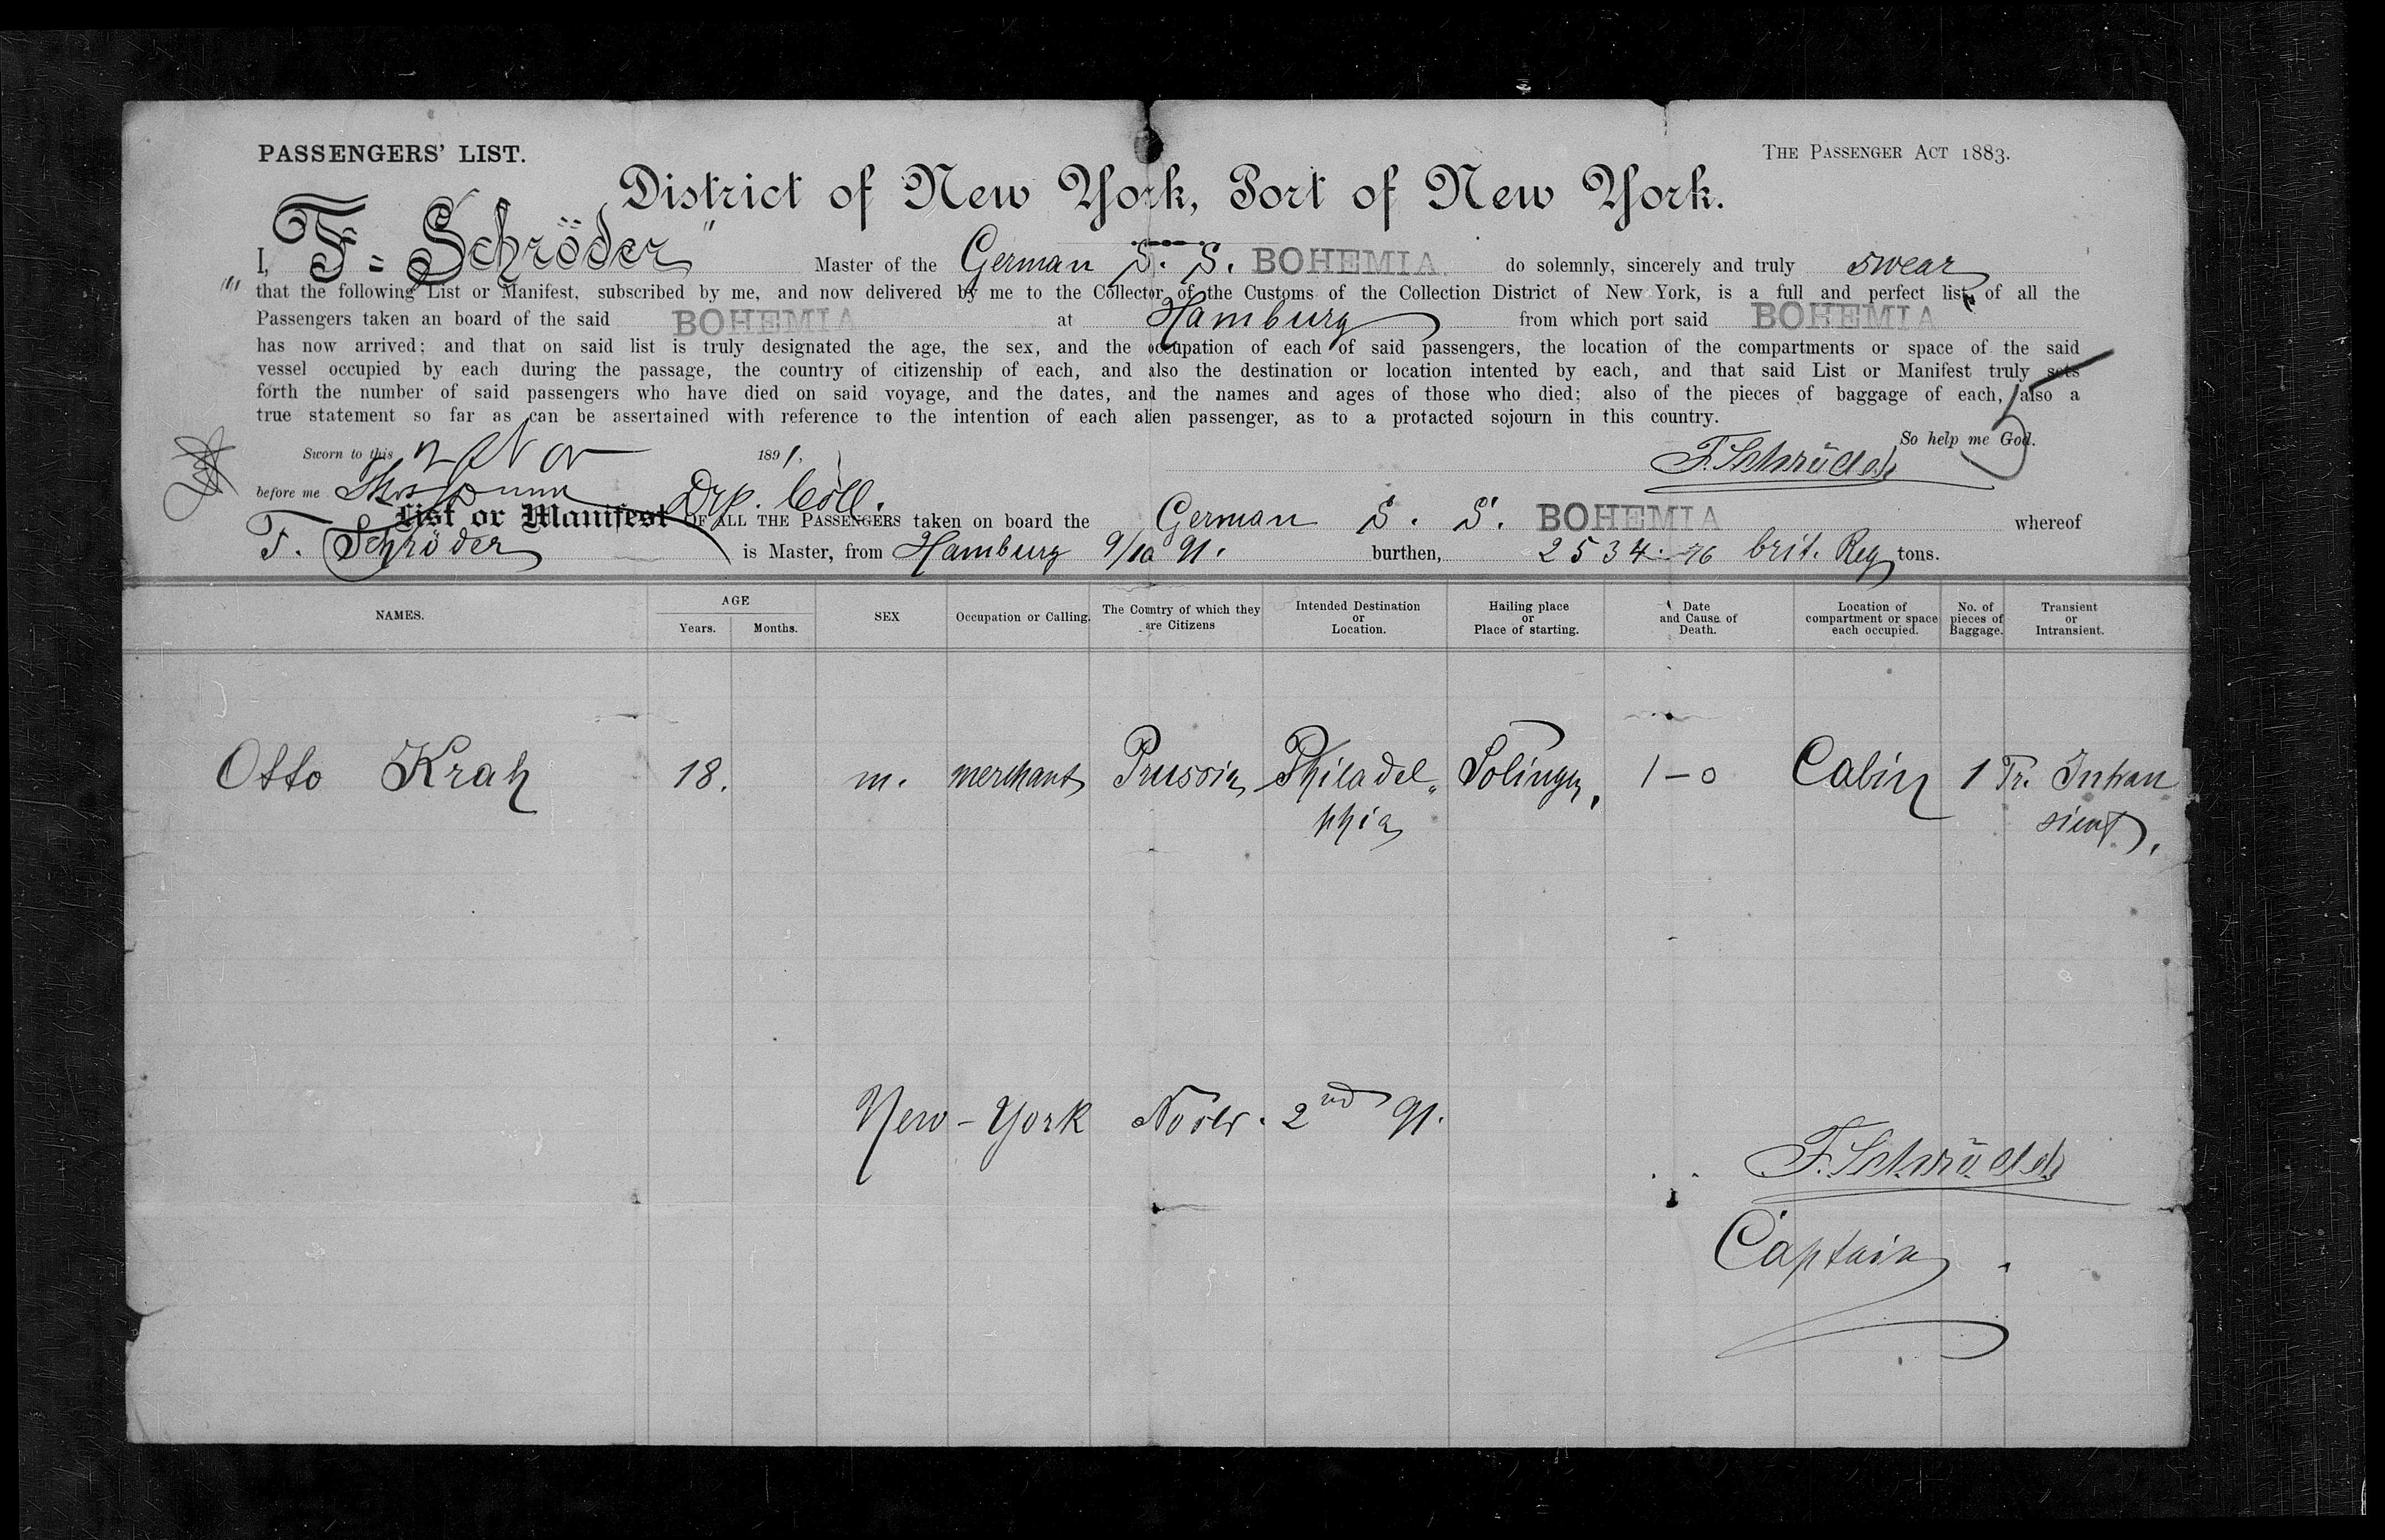 PASSENGERS' LIST.
THE PASSENGER ACT 1883.
District of New York, Port of New York.
I, F. Schröder Master of the German S. S. BOHEMIA do solemnly, sincerely and truly swear
that the following List or Manifest, subscribed by me, and now delivered by me to the Collector of the Customs of the Collection District of New York, is a full and perfect list of all the
Passengers taken an board of the said BOHEMIA at Hamburg from which port said BOHEMIA
has now arrived; and that on said list is truly designated the age, the sex, and the occupation of each of said passengers, the location of the compartments or space of the said
vessel occupied by each during the passage, the country of citizenship of each, and also the destination or location intented by each, and that said List or Manifest truly sets
forth the number of said passengers who have died on said voyage, and the dates, and the names and ages of those who died; also of the pieces of baggage of each, also a
true statement so far as can be assertained with reference to the intention of each alien passenger, as to a protacted sojourn in this country.
So help me God.
Sworn to this 2 Nov 1891.
F. Schröder
before me Dep. Coll.
List or Manifest OF ALL THE PASSENGERS taken on board the German S. S. BOHEMIA whereof
F. Schröder is Master, from Hamburg 9/10 91. burthen, 2534.76 brit. Reg tons.
NAMES. AGE Years. Months. SEX Occupation or Calling. The Country of which they are Citizens Intended Destination or Location. Hailing place or Place of starting. Date and Cause of Death. Location of compartment or space each occupied. No. of pieces of Baggage. Transient or Intransient.
Otto Krah 18. m. merchant Prussia Philadel„ Solingen, 1-0 Cabin 1 Tr. Intran
phia sient,
New-York Novbr. 2nd 91.
F. Schröder
Captain